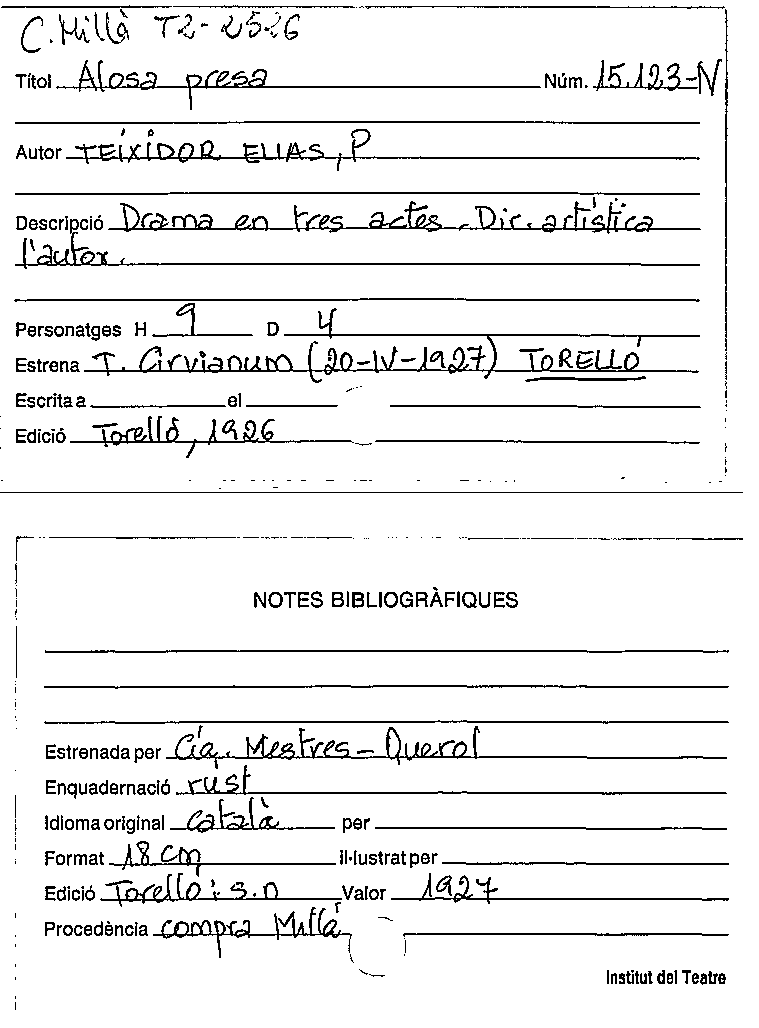 C. Millà T2-2526
Títol Alosa presa Núm. 15.123-N
Autor TEIXIDOR ELIAS, P
Descripció Drama en tres actes. Dir. artística
l'autor.
Personatges H 9 D 4
Estrena T. Cirvianum (20-IV-1927) TORELLÓ
Escrita a el
Edició Torelló, 1926
NOTES BIBLIOGRÀFIQUES
Estrenada per Cía. Mestres-Querol
Enquadernació rúst
Idioma original català per
Format 18 cm il·lustrat per
Edició Torelló: s.n Valor 1927
Procedència compra Millà
Institut del Teatre